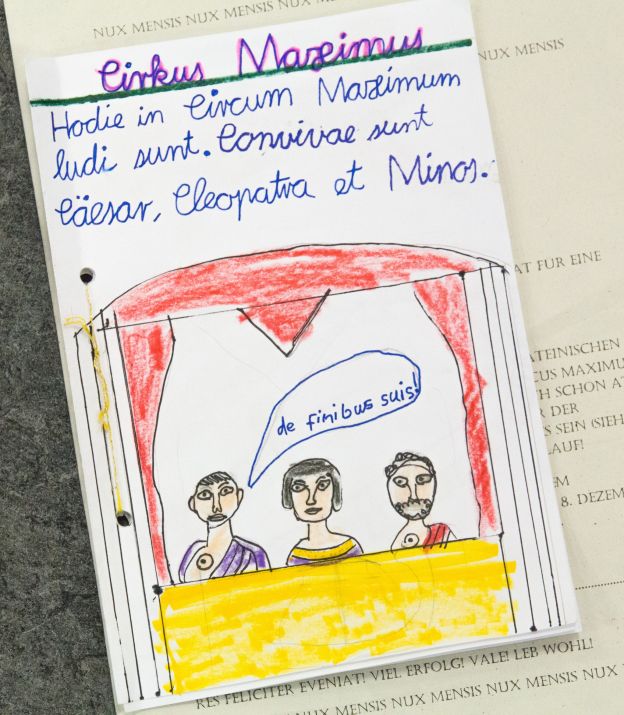 NUX MENSIS NUX MENSIS NUX MENSIS
NUX MENSIS
Cirkus Maximus
Hodie in Circum Maximum
ludi sunt. Convivae sunt
Cäesar, Cleopatra et Minos.
de finibus suis!
AT FÜR EINE
ATEINISCHEN
CUS MAXIMU
CH SCHON A
R DER
S SEIN (SIEH
LAUF!
EM
8. DEZEM
RES FELICITER EVENIAT! VIEL ERFOLG! VALE! LEB WOHL!
NUX MENSIS NUX MENSIS NUX MENSIS NUX MENSIS NUX